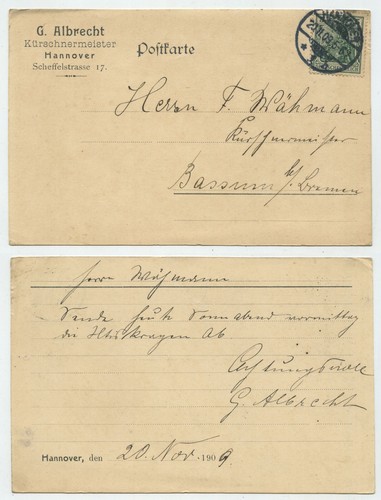 G. Albrecht
Kürschnermeister
Hannover
Scheffelstrasse 17.
Postkarte
Herrn F. Wähmann
Kürschnermeister
Bassum b/. Bremen
Herrn Wähmann
Sende heute Sonnabend vormittag
die kragen ab
Achtungsvoll
G. Albrecht
Hannover, den 20. Nov. 1909.